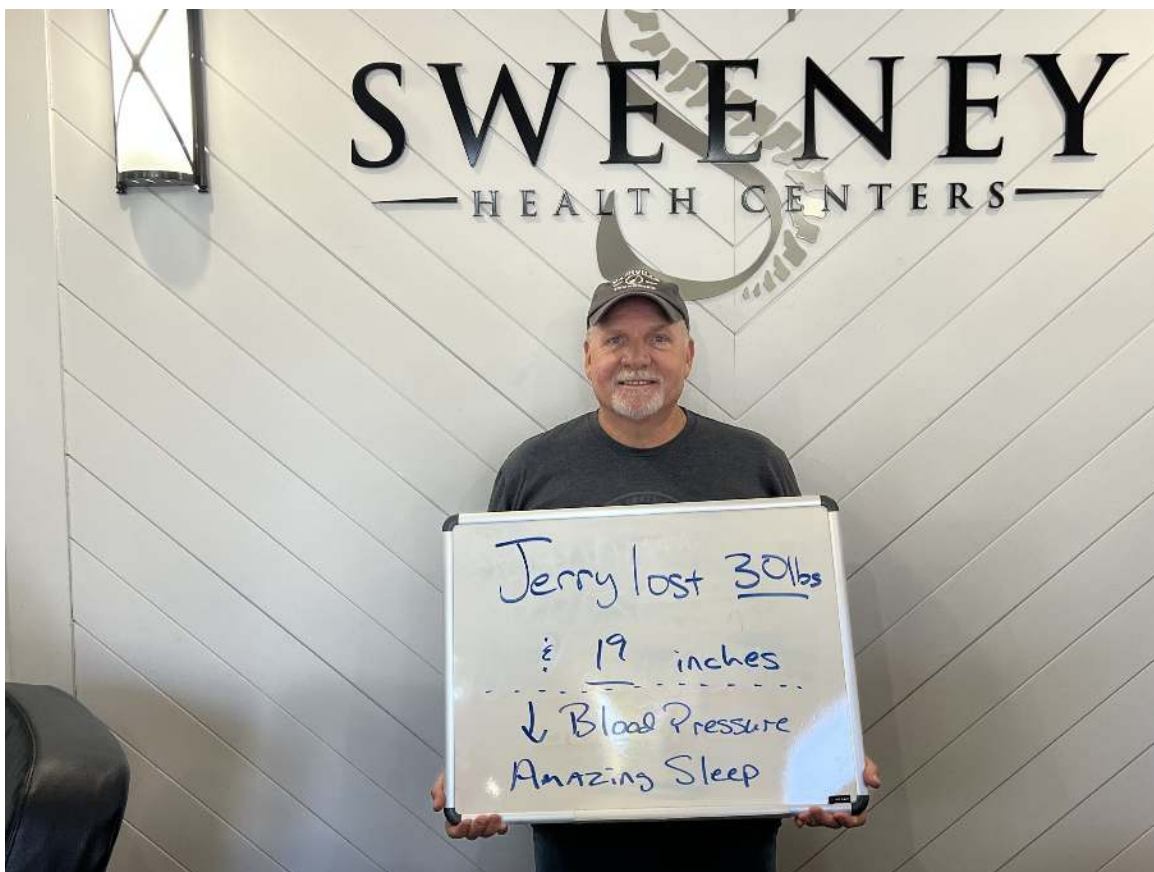 SWEENEY
HEALTH CENTERS
Jerry lost 30lbs
& 19 inches
↓ Blood Pressure
Amazing Sleep